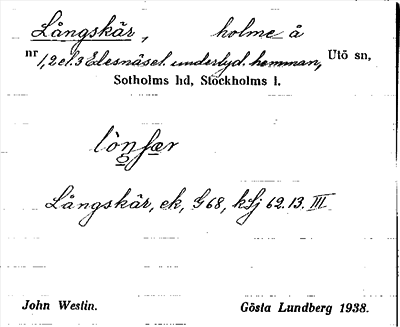 Långskär, holme å
nr 1,2 el. 3 Edesnäsel. underlyd. hemman, Utö sn,
Sotholms hd, Stockholms l.
lònfær
Långskär, ek, G 68, kSj 62.13. III
John Westin. Gösta Lundberg 1938.